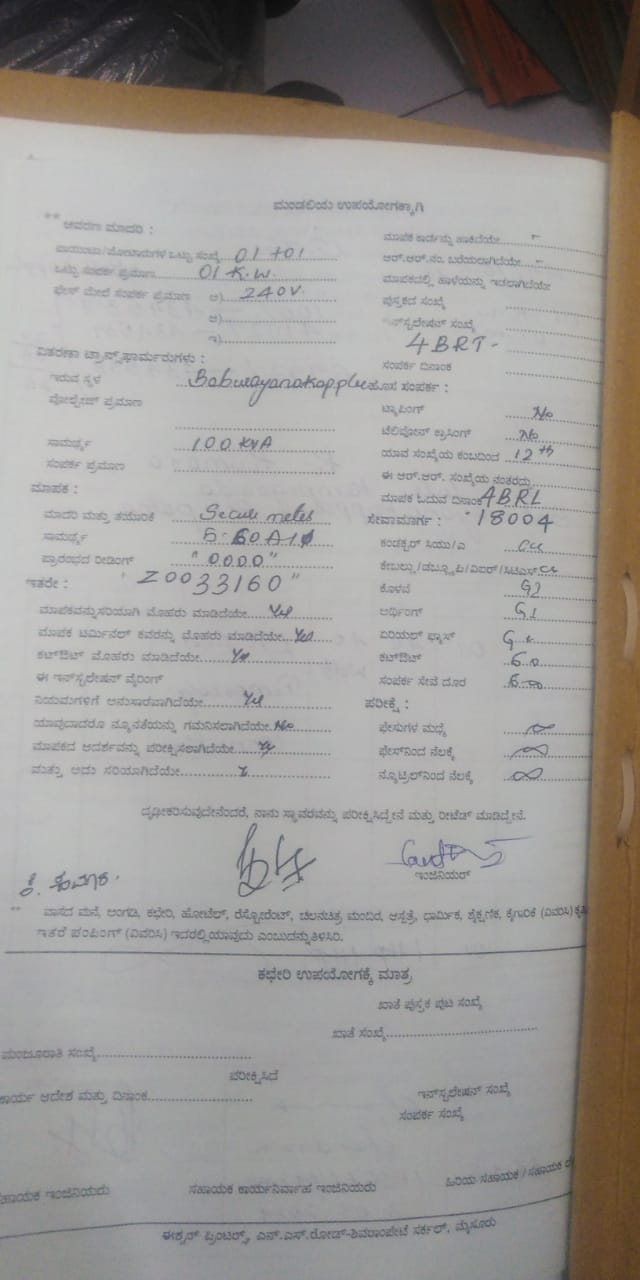 ಮಂಡಲಿಯ ಉಪಯೋಗಕ್ಕಾಗಿ
** ಆವರಣ ಮಾದರಿ :
ಪಾಯಿಂಟು/ಮೋಟಾರುಗಳ ಒಟ್ಟು ಸಂಖ್ಯೆ 01 +01
ಒಟ್ಟು ಸಂಪರ್ಕ ಪ್ರಮಾಣ 01 K.W.
ಫೇಸ್ ಮೇಲೆ ಸಂಪರ್ಕ ಪ್ರಮಾಣ ಅ) 240V.
ಆ)
ಇ)
ವಿತರಣಾ ಟ್ರಾನ್ಸ್‌ಫಾರ್ಮರುಗಳು :
ಇರುವ ಸ್ಥಳ
ವೋಲ್ಟೇಜ್ ಪ್ರಮಾಣ
ಸಾಮರ್ಥ್ಯ 100 KVA
ಸಂಪರ್ಕ ಪ್ರಮಾಣ
ಮಾಪಕ :
ಮಾದರಿ ಮತ್ತು ತಯಾರಿಕೆ
ಸಾಮರ್ಥ್ಯ
ಪ್ರಾರಂಭದ ರೀಡಿಂಗ್ "0000"
ಇತರೇ : "Z0033160"
ಮಾಪಕವನ್ನು ಸರಿಯಾಗಿ ಮೊಹರು ಮಾಡಿದೆಯೇ Yes
ಮಾಪಕ ಟರ್ಮಿನಲ್ ಕವರನ್ನು ಮೊಹರು ಮಾಡಿದೆಯೇ Yes
ಕಟ್‌ಔಟ್ ಮೊಹರು ಮಾಡಿದೆಯೇ Yes
ಈ ಇನ್‌ಸ್ಟಲೇಷನ್ ವೈರಿಂಗ್
ನಿಯಮಗಳಿಗೆ ಅನುಸಾರವಾಗಿದೆಯೇ Yes
ಯಾವುದಾದರೂ ನ್ಯೂನತೆಯನ್ನು ಗಮನಿಸಲಾಗಿದೆಯೇ No
ಮಾಪಕದ ಆದರ್ಶವನ್ನು ಪರೀಕ್ಷಿಸಲಾಗಿದೆಯೇ Yes
ಮತ್ತು ಅದು ಸರಿಯಾಗಿದೆಯೇ
ಮಾಪಕ ಕಾರ್ಡನ್ನು ಹಾಕಿದೆಯೇ -
ಆರ್.ಆರ್.ನಂ. ಬರೆಯಲಾಗಿದೆಯೇ -
ಮಾಪಕದಲ್ಲಿ ಹಾಳೆಯನ್ನು ಇಡಲಾಗಿದೆಯೇ
ಪುಸ್ತಕದ ಸಂಖ್ಯೆ
ಇನ್‌ಸ್ಟಲೇಷನ್ ಸಂಖ್ಯೆ
4BRT-
ಸಂಪರ್ಕ ದಿನಾಂಕ
ಹೊಸ ಸಂಪರ್ಕ :
ಟ್ಯಾಪಿಂಗ್ No
ಟೆಲಿಫೋನ್ ಕ್ರಾಸಿಂಗ್ No
ಯಾವ ಸಂಖ್ಯೆಯ ಕಂಬದಿಂದ 12th
ಈ ಆರ್.ಆರ್. ಸಂಖ್ಯೆಯ ನಂತರದ್ದು
ಮಾಪಕ ಓದುವ ದಿನಾಂಕ ABRL
ಸೇವಾಮಾರ್ಗ : 18004
ಕಂಡಕ್ಟರ್ ಸಿಯು/ಎ cu
ಕೇಬಲ್ಲು/ಡಬ್ಲ್ಯೂಪಿ/ವಿಐಆರ್/ಸಿಟಿಎಸ್
ಕೊಳವೆ GI
ಅರ್ಥಿಂಗ್ GI
ಏರಿಯಲ್ ಫ್ಯೂಸ್
ಕಟ್‌ಔಟ್
ಸಂಪರ್ಕ ಸೇವೆ ದೂರ
ಪರೀಕ್ಷೆ :
ಫೇಸುಗಳ ಮಧ್ಯೆ ∞
ಫೇಸ್‌ನಿಂದ ನೆಲಕ್ಕೆ ∞
ನ್ಯೂಟ್ರಲ್‌ನಿಂದ ನೆಲಕ್ಕೆ ∞
ದೃಢೀಕರಿಸುವುದೇನೆಂದರೆ, ನಾನು ಸ್ಥಾವರವನ್ನು ಪರೀಕ್ಷಿಸಿದ್ದೇನೆ ಮತ್ತು ರೀಟೆಡ್ ಮಾಡಿದ್ದೇನೆ.
ಇಂಜಿನಿಯರ್
** ವಾಸದ ಮನೆ, ಅಂಗಡಿ, ಕಛೇರಿ, ಹೋಟೆಲ್, ರೆಸ್ಟೋರೆಂಟ್, ಚಲನಚಿತ್ರ ಮಂದಿರ, ಆಸ್ಪತ್ರೆ, ಧಾರ್ಮಿಕ, ಶೈಕ್ಷಣಿಕ, ಕೈಗಾರಿಕೆ (ವಿವರಿಸಿ)
ಇತರೆ ಪಂಪಿಂಗ್ (ವಿವರಿಸಿ) ಇದರಲ್ಲಿ ಯಾವುದು ಎಂಬುದನ್ನು ತಿಳಿಸಿರಿ.
ಕಛೇರಿ ಉಪಯೋಗಕ್ಕೆ ಮಾತ್ರ
ಖಾತೆ ಪುಸ್ತಕ ಪುಟ ಸಂಖ್ಯೆ
ಖಾತೆ ಸಂಖ್ಯೆ
ಮಂಜೂರಾತಿ ಸಂಖ್ಯೆ
ಪರೀಕ್ಷಿಸಿದೆ
ಕಾರ್ಯ ಆದೇಶ ಮತ್ತು ದಿನಾಂಕ
ಇನ್‌ಸ್ಟಲೇಷನ್ ಸಂಖ್ಯೆ
ಸಂಪರ್ಕ ಸಂಖ್ಯೆ
ಸಹಾಯಕ ಇಂಜಿನಿಯರು ಸಹಾಯಕ ಕಾರ್ಯನಿರ್ವಾಹ ಇಂಜಿನಿಯರು ಹಿರಿಯ ಸಹಾಯಕ / ಸಹಾಯಕ
ಈಶ್ವರ್ ಪ್ರಿಂಟರ್ಸ್, ಎನ್.ಎಸ್.ರೋಡ್-ಶಿವರಾಂಪೇಟೆ ಸರ್ಕಲ್, ಮೈಸೂರು